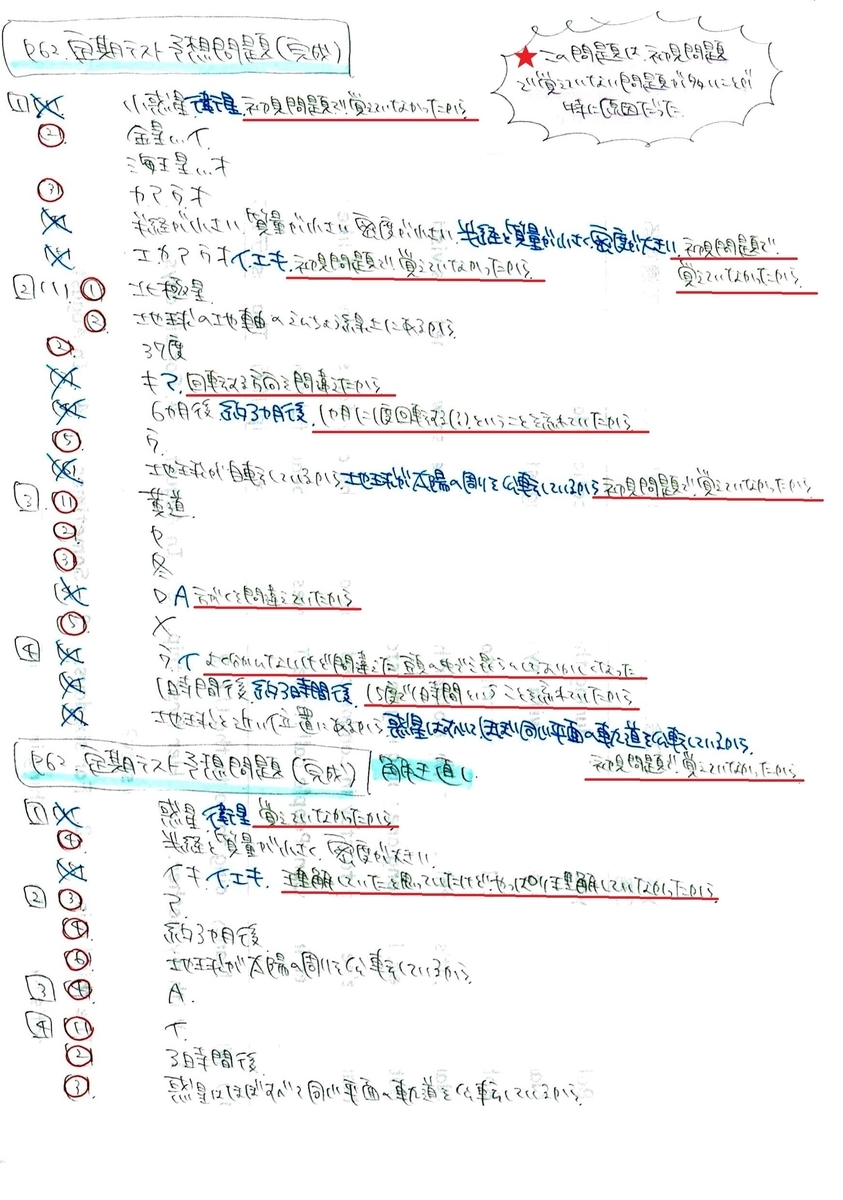 P62. 定期テスト予想問題(完成)
★この問題は、初見問題
で覚えていない問題が多いことが
特に原因だった
1 (1) 小惑星 衛星 初見問題で覚えていなかったから
(2) 金星…イ
海王星…オ
(3) カアウオ
(4) 半径が小さい、質量が小さい 密度が小さい 半径と質量が小さく、密度が大きい 初見問題で
覚えていなかったから
(5) エカアウキ イ.エキ. 初見問題で覚えていなかったから
2 (1) ① 北極星
② 地球の地軸のえんちょう線上にあるから
(2) 37度
(3) キ ア. 回転する方向を間違えたから
(4) 6カ月後 約3カ月後. 1カ月に1度回転する(?)ということを忘れていたから
(5) ウ
(6) 地球が自転しているから 地球が太陽の周りを公転しているから 初見問題で覚えていなかったから
3 (1) 黄道
(2)
(3) 冬
(4) D A を間違えていたから
(5)
4 (1) ウ イ
(2) 1時間後 約3時間後. 15度で1時間ということを忘れていたから
(3) 地球と近い位置にあるから 惑星はすべてほぼ同じ平面の軌道を公転しているから.
初見問題で覚えていなかったから
P62. 定期テスト予想問題(完成) 解き直し
1 (1) 惑星 衛星 覚えていなかったから
(4) 半径と質量が小さく、密度が大きい.
(5) イキ. イ.エキ. 理解していたと思っていたけどやっぱり理解していなかったから
2 (3) ア.
(4) 約3カ月後
(6) 地球が太陽の周りを公転しているから
3 (4) A.
4 (1) イ.
(2) 3時間後
(3) 惑星はほぼすべて同じ平面の軌道を公転しているから